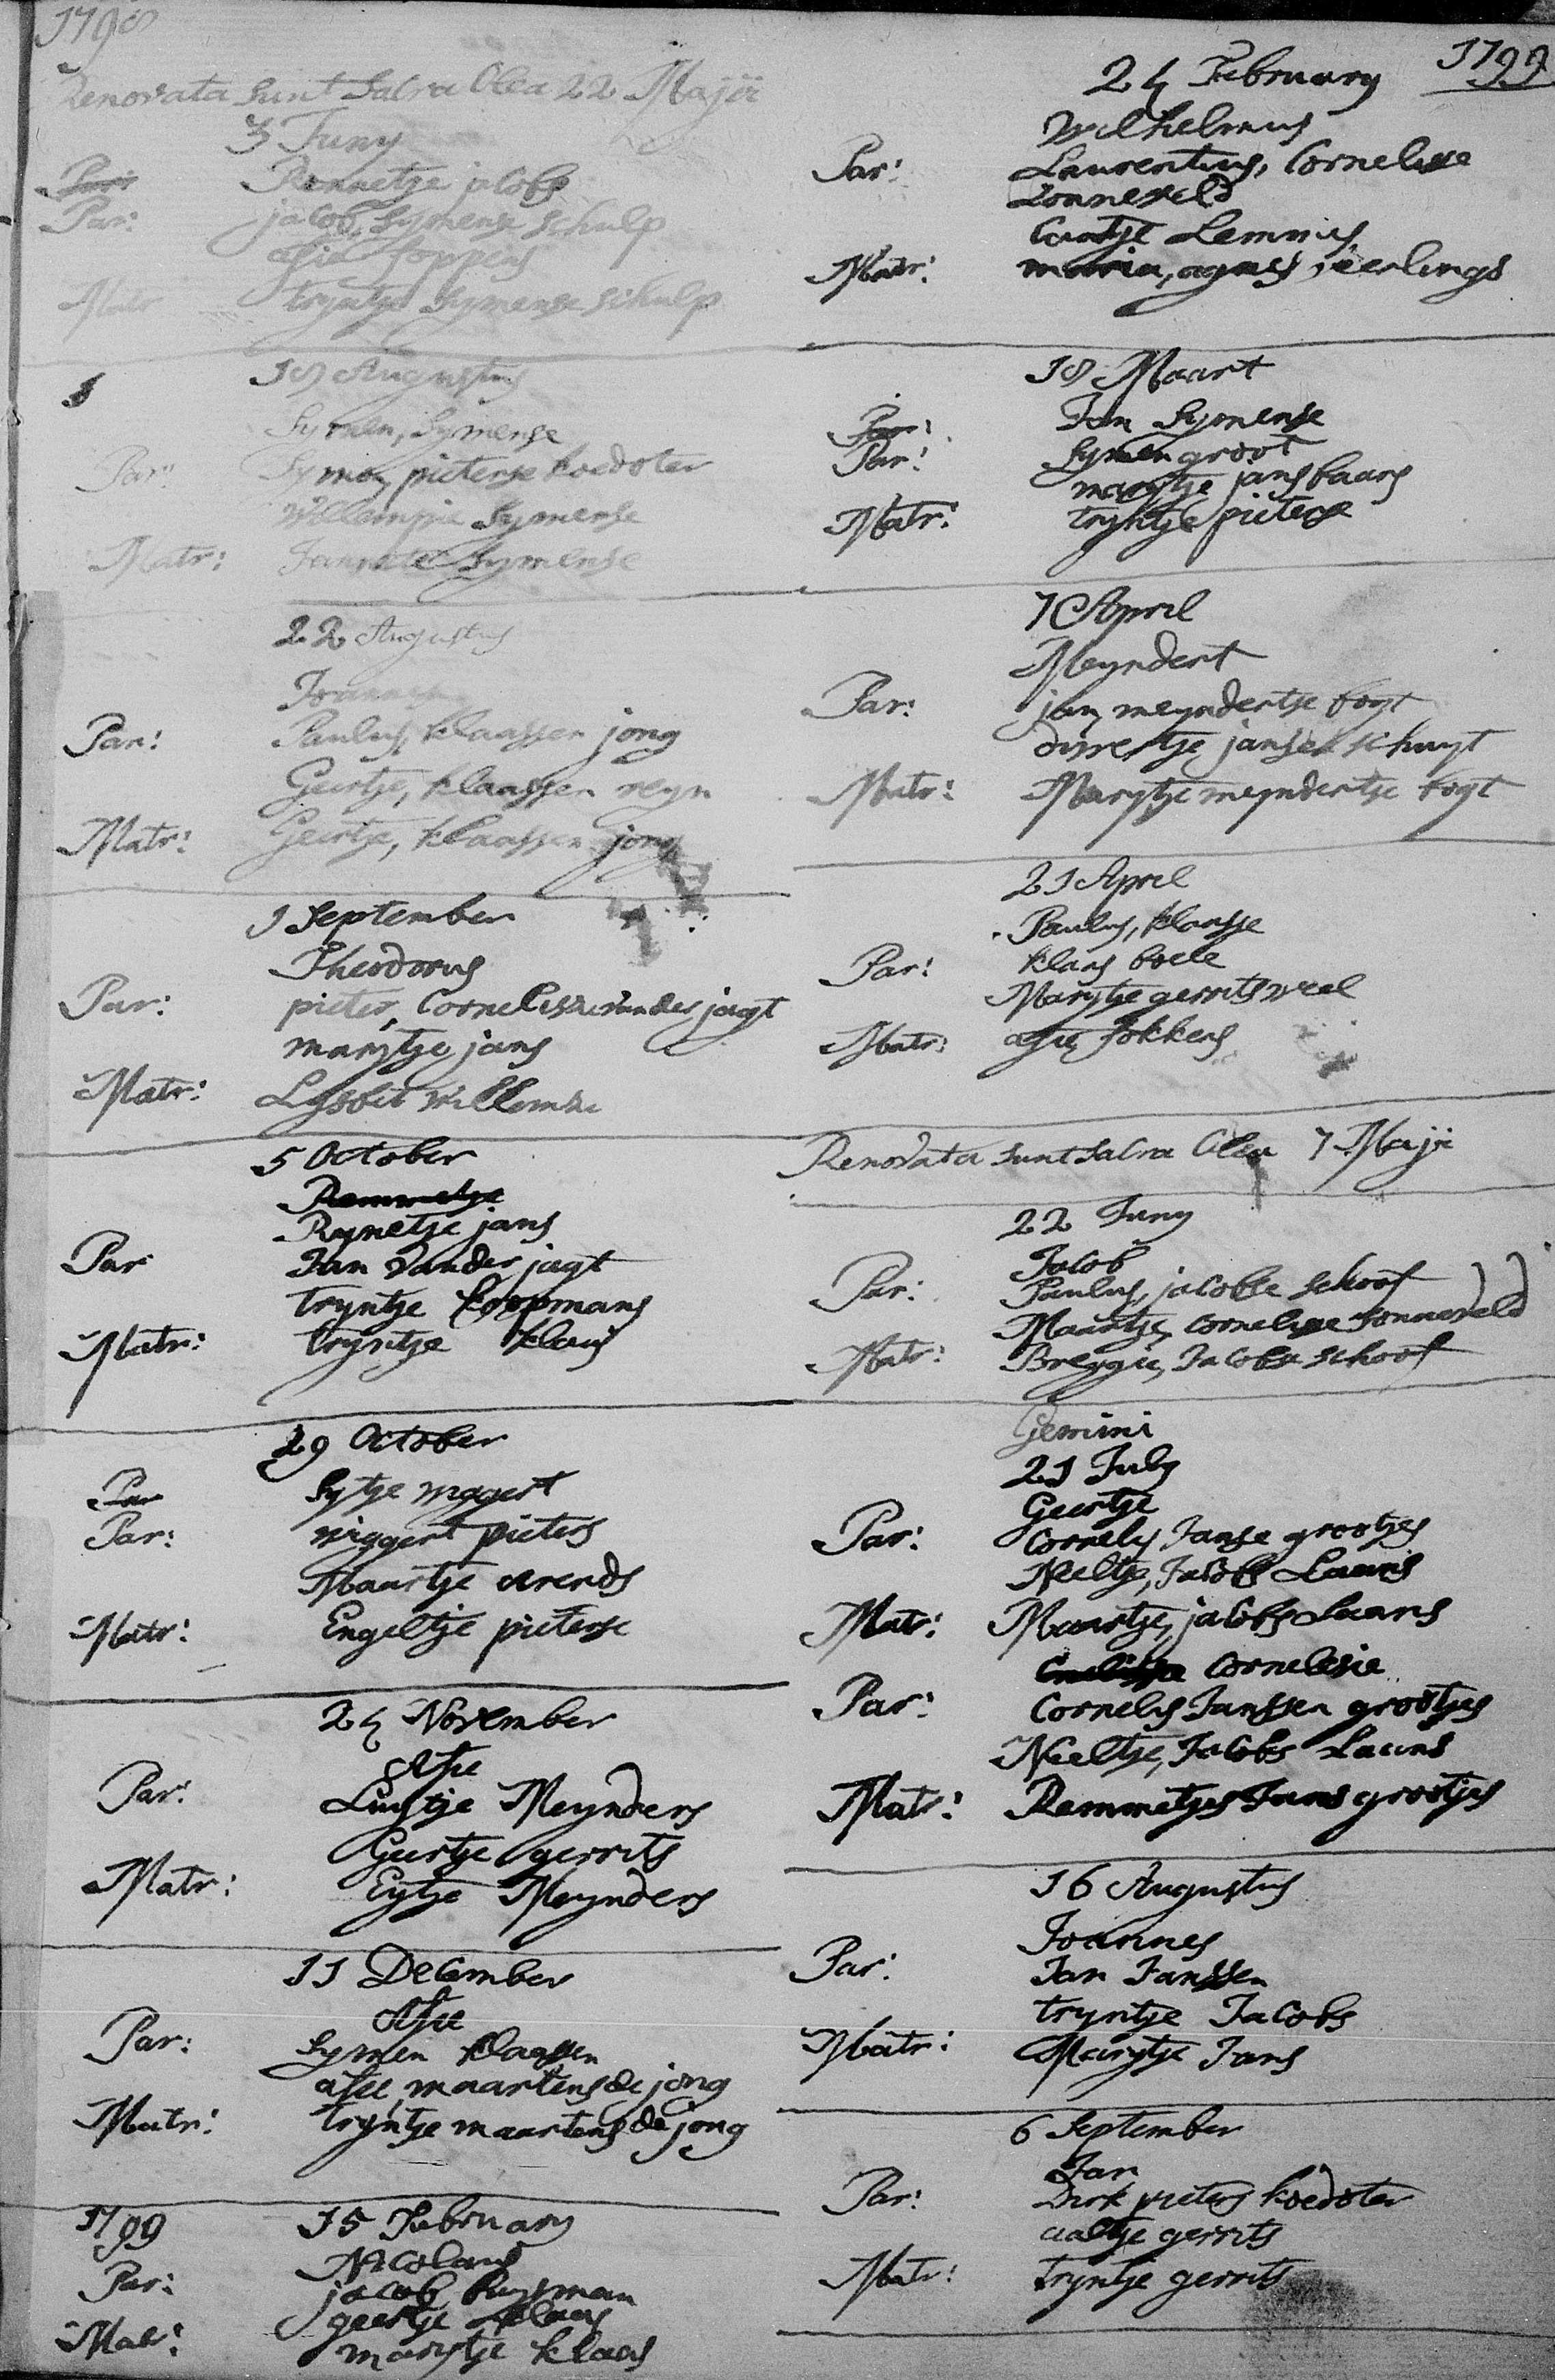 1798
Renovata Sunt Sacra Olea 22 Maji
3 Juny
Par: Remmetje jacobs
Par: jacob Symense schulp
Afie foppens
Matr tryntje Symense schulp
18 Augustus
Symen, Symense
Par: Symon pieterse koedoter
Willempie Symense
Matr: Jannetie Symense
22 Augustus
Joannes
Par: Paulus, klaassen jong
Geertje, klaassen reyn
Matr: Geertje, klaassen jong
1 September
Theodorus
Par: pieter, Cornelisse vander jagt
marytje jans
Matr: Lysbet willemse
5 October
Remmetje
Rynetje jans
Par Jan Vander jagt
tryntje koopmans
Matr: tryntje klaas
29 October
Par Sytje wiggert
Par: wiggert pieters
Maartje arends
Matr: Engeltje pieterse
24 November
Afie
Par: Luytje Meynders
Geertje gerrits
Matr: Eytje Meynders
11 December
Afie
Par: Symen klaassen
afie, maartens de jong
Matr: tryntje maartens de jong
1799 15 February
Nicolaus
Par: jacob huysman
geertje klaas
Mat: marytje klaas
1799
24 February
Wilhelmus
Par: Laurentius, Cornelisse
Zonneveld
Lemmis
Matr: maria, agnes, veerlings
18 Maart
Par: Jan Symense
Par: Symen groot
marytje jans baars
Matr: tryntje pieterse
7 April
Meyndert
Par: jan, meyndertse vogt
dirretje jansen schuyt
Matr: Marytje meyndertse vogt
21 April
Paulus, klaasse
Par: klaas boele
Marytje gerrits weel
Matr: afie, fokkens
Renovata sunt Sacra Olea 7 Maji
22 Juny
Jacob
Par: Paulus, jacobse schoof
Maartje, Cornelisse Sonneveld
Matr: Breggie, Jacobse schoof
Gemini
21 July
Geertje
Par: Cornelis Janse grootjes
Neeltje, Jacobs Lauris
Matr: Maartje, jacobs Laurs
Cornelisie
Par: Cornelis Janssen grootjes
Neeltje, Jacobs Laurs
Matr: Remmetjes Jans grootjes
16 Augustus
Joannes
Par: Jan Janssen
tryntje Jacobs
Matr: Marytje Jans
6 September
Jan
Par: Dirk pieters koedoter
aaltje gerrits
Matr: tryntje gerrits